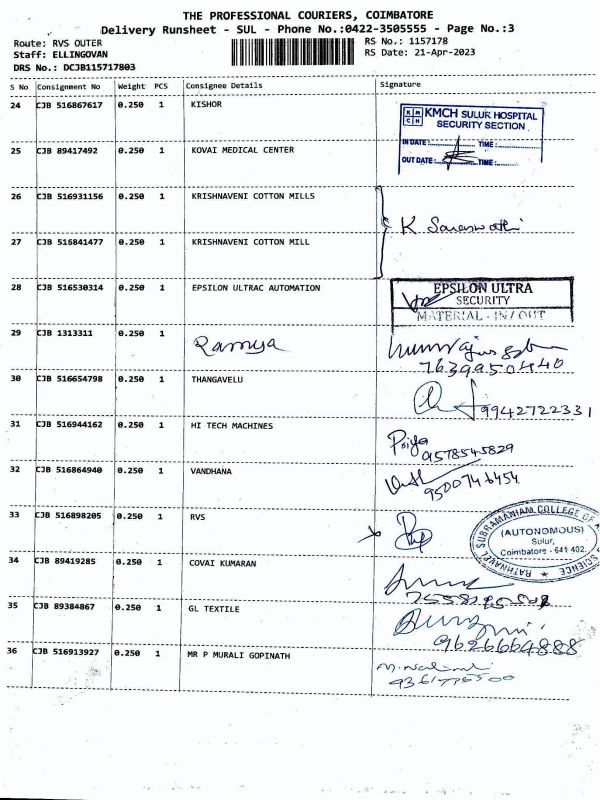 THE PROFESSIONAL COURIERS, COIMBATORE
Delivery Runsheet - SUL - Phone No.:0422-3505555 - Page No.:3
Route: RVS OUTER RS No.: 1157178
Staff: ELLINGOVAN RS Date: 21-Apr-2023
DRS No.: DCJB115717803
S No Consignment No Weight PCS Consignee Details Signature
24 CJB 516867617 0.250 1 KISHOR
KMCH SULUR HOSPITAL
SECURITY SECTION
IN DATE: TIME:
OUT DATE: TIME:
25 CJB 89417492 0.250 1 KOVAI MEDICAL CENTER
26 CJB 516931156 0.250 1 KRISHNAVENI COTTON MILLS
K Saraswathi
27 CJB 516841477 0.250 1 KRISHNAVENI COTTON MILL
28 CJB 516530314 0.250 1 EPSILON ULTRAC AUTOMATION
EPSILON ULTRA
SECURITY
MATERIAL - IN / OUT
29 CJB 1313311 0.250 1 Ramya
7639950440
30 CJB 516654798 0.250 1 THANGAVELU
9942722331
31 CJB 516944162 0.250 1 HI TECH MACHINES
Priya
9578545829
32 CJB 516864940 0.250 1 VANDHANA
9500746454
33 CJB 516898205 0.250 1 RVS
RATHNAVEL SUBRAMANIAM COLLEGE OF SCIENCE
(AUTONOMOUS)
Sulur,
Coimbatore - 641 402.
34 CJB 89419285 0.250 1 COVAI KUMARAN
35 CJB 89384867 0.250 1 GL TEXTILE
9626664888
36 CJB 516913927 0.250 1 MR P MURALI GOPINATH
9361776500